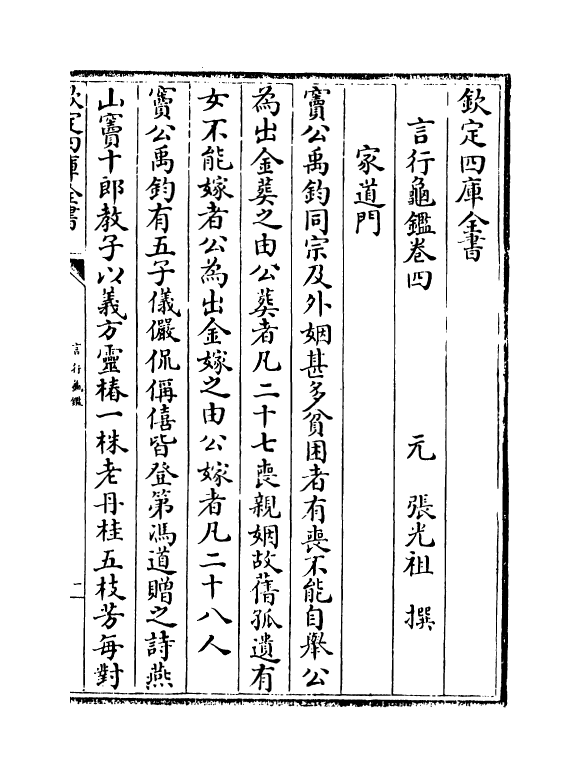 欽定四庫全書
言行龜鑑卷四
元　張光祖　撰
家道門
竇公禹鈞同宗及外姻甚多貧困者有喪不能自舉公
為出金葬之由公葬者凡二十七喪親姻故舊孤遺有
女不能嫁者公為出金嫁之由公嫁者凡二十八人
竇公禹鈞有五子儀儼侃偁僖皆登第馮道贈之詩燕
山竇十郎教子以義方靈椿一株老丹桂五枝芳每對
欽定四庫全書
言行龜鑑
一